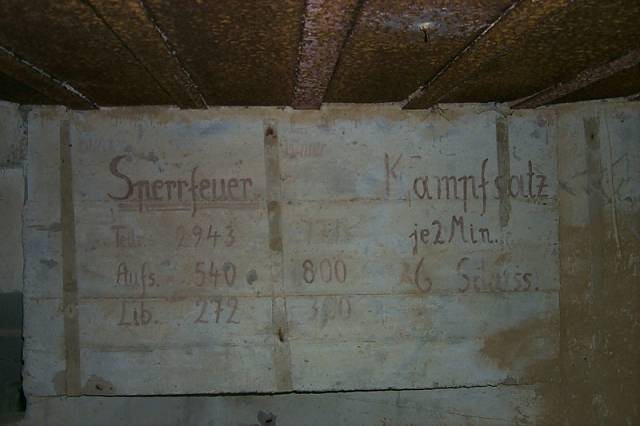 Sperrfeuer Kampfsatz
Teil. 2943 je 2 Min.
Aufs. 540 800 6 Schuss.
Lib. 272 300